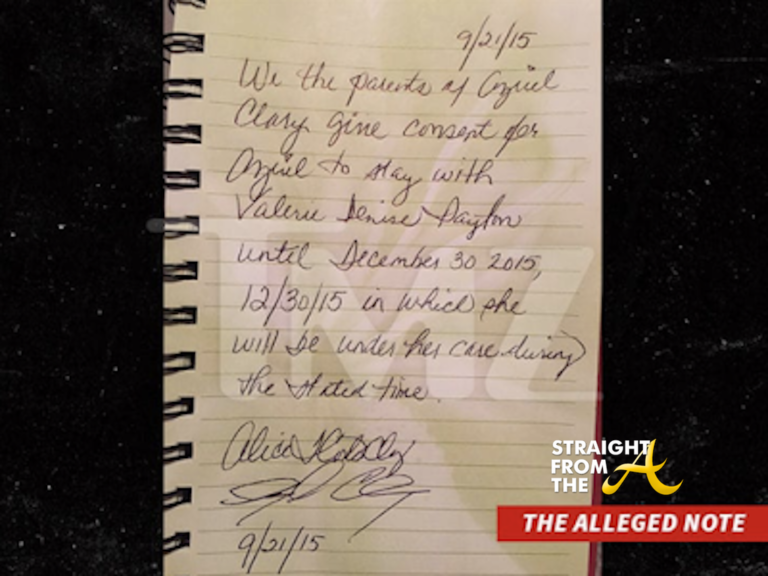 9/21/15
We the parents of Azriel
Clary give consent for
Azriel to stay with
Valerie Denise Payton
until December 30 2015,
12/30/15 in which she
will be under her care during
the stated time.
Alice
9/21/15
TMZ
STRAIGHT
FROM
THE A
THE ALLEGED NOTE